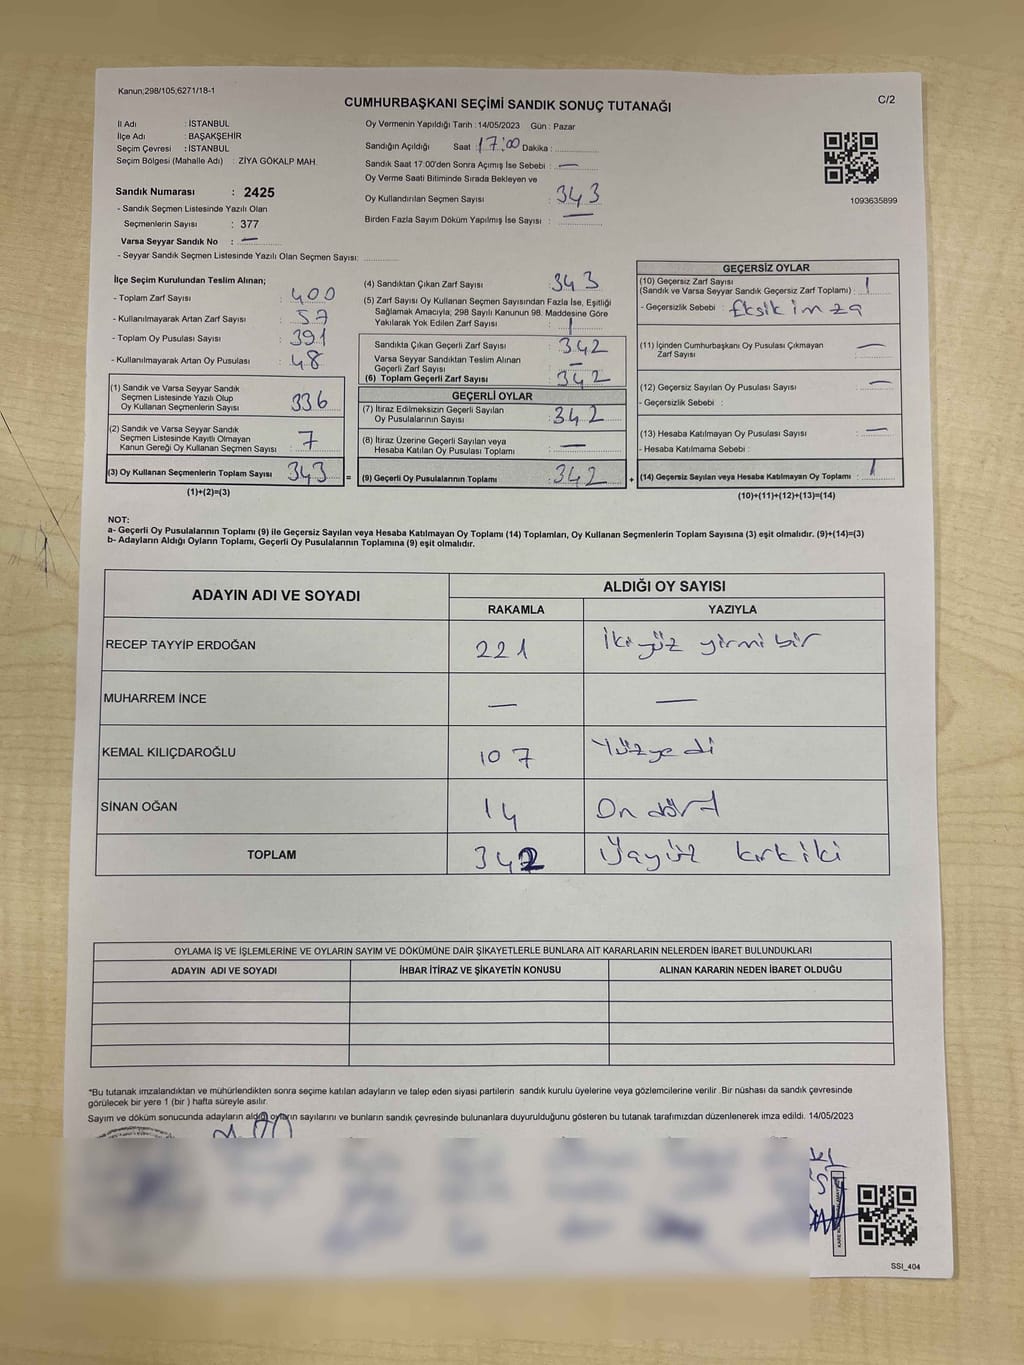 Kanun;298/105;6271/18-1
CUMHURBAŞKANI SEÇİMİ SANDIK SONUÇ TUTANAĞI
C/2
İl Adı : İSTANBUL
İlçe Adı : BAŞAKŞEHİR
Seçim Çevresi : İSTANBUL
Seçim Bölgesi (Mahalle Adı) : ZİYA GÖKALP MAH.
Sandık Numarası : 2425
- Sandık Seçmen Listesinde Yazılı Olan
Seçmenlerin Sayısı : 377
Varsa Seyyar Sandık No : —
- Seyyar Sandık Seçmen Listesinde Yazılı Olan Seçmen Sayısı:
Oy Vermenin Yapıldığı Tarih : 14/05/2023 Gün : Pazar
Sandığın Açıldığı Saat : 17:00 Dakika :
Sandık Saat 17:00'den Sonra Açımış İse Sebebi : —
Oy Verme Saati Bitiminde Sırada Bekleyen ve
Oy Kullandırılan Seçmen Sayısı : 343
Birden Fazla Sayım Döküm Yapılmış İse Sayısı : —
1093635899
İlçe Seçim Kurulundan Teslim Alınan;
- Toplam Zarf Sayısı : 400
- Kullanılmayarak Artan Zarf Sayısı : 57
- Toplam Oy Pusulası Sayısı : 391
- Kullanılmayarak Artan Oy Pusulası : 48
(1) Sandık ve Varsa Seyyar Sandık
Seçmen Listesinde Yazılı Olup
Oy Kullanan Seçmenlerin Sayısı : 336
(2) Sandık ve Varsa Seyyar Sandık
Seçmen Listesinde Kayıtlı Olmayan
Kanun Gereği Oy Kullanan Seçmen Sayısı : 7
(3) Oy Kullanan Seçmenlerin Toplam Sayısı : 343 =
(1)+(2)=(3)
(4) Sandıktan Çıkan Zarf Sayısı : 343
(5) Zarf Sayısı Oy Kullanan Seçmen Sayısından Fazla İse, Eşitliği
Sağlamak Amacıyla; 298 Sayılı Kanunun 98. Maddesine Göre
Yakılarak Yok Edilen Zarf Sayısı : 1
Sandıkta Çıkan Geçerli Zarf Sayısı : 342
Varsa Seyyar Sandıktan Teslim Alınan
Geçerli Zarf Sayısı : —
(6) Toplam Geçerli Zarf Sayısı : 342
GEÇERLİ OYLAR
(7) İtiraz Edilmeksizin Geçerli Sayılan
Oy Pusulalarının Sayısı : 342
(8) İtiraz Üzerine Geçerli Sayılan veya
Hesaba Katılan Oy Pusulası Toplamı : —
(9) Geçerli Oy Pusulalarının Toplamı : 342 +
GEÇERSİZ OYLAR
(10) Geçersiz Zarf Sayısı
(Sandık ve Varsa Seyyar Sandık Geçersiz Zarf Toplamı) : 1
- Geçersizlik Sebebi : Eksik imza
(11) İçinden Cumhurbaşkanı Oy Pusulası Çıkmayan
Zarf Sayısı : —
(12) Geçersiz Sayılan Oy Pusulası Sayısı : —
- Geçersizlik Sebebi :
(13) Hesaba Katılmayan Oy Pusulası Sayısı : —
- Hesaba Katılmama Sebebi :
(14) Geçersiz Sayılan veya Hesaba Katılmayan Oy Toplamı : 1
(10)+(11)+(12)+(13)=(14)
NOT:
a- Geçerli Oy Pusulalarının Toplamı (9) ile Geçersiz Sayılan veya Hesaba Katılmayan Oy Toplamı (14) Toplamları, Oy Kullanan Seçmenlerin Toplam Sayısına (3) eşit olmalıdır. (9)+(14)=(3)
b- Adayların Aldığı Oyların Toplamı, Geçerli Oy Pusulalarının Toplamına (9) eşit olmalıdır.
ADAYIN ADI VE SOYADI ALDIĞI OY SAYISI
RAKAMLA YAZIYLA
RECEP TAYYİP ERDOĞAN 221 İkiyüz yirmi bir
MUHARREM İNCE — —
KEMAL KILIÇDAROĞLU 107 Yüzyedi
SİNAN OĞAN 14 On dört
TOPLAM 342 Üçyüz kırkiki
OYLAMA İŞ VE İŞLEMLERİNE VE OYLARIN SAYIM VE DÖKÜMÜNE DAİR ŞİKAYETLERLE BUNLARA AİT KARARLARIN NELERDEN İBARET BULUNDUKLARI
ADAYIN ADI VE SOYADI İHBAR İTİRAZ VE ŞİKAYETİN KONUSU ALINAN KARARIN NEDEN İBARET OLDUĞU
*Bu tutanak imzalandıktan ve mühürlendikten sonra seçime katılan adayların ve talep eden siyasi partilerin sandık kurulu üyelerine veya gözlemcilerine verilir .Bir nüshası da sandık çevresinde
görülecek bir yere 1 (bir ) hafta süreyle asılır.
Sayım ve döküm sonucunda adayların aldığı oyların sayılarını ve bunların sandık çevresinde bulunanlara duyurulduğunu gösteren bu tutanak tarafımızdan düzenlenerek imza edildi. 14/05/2023
SSI_404